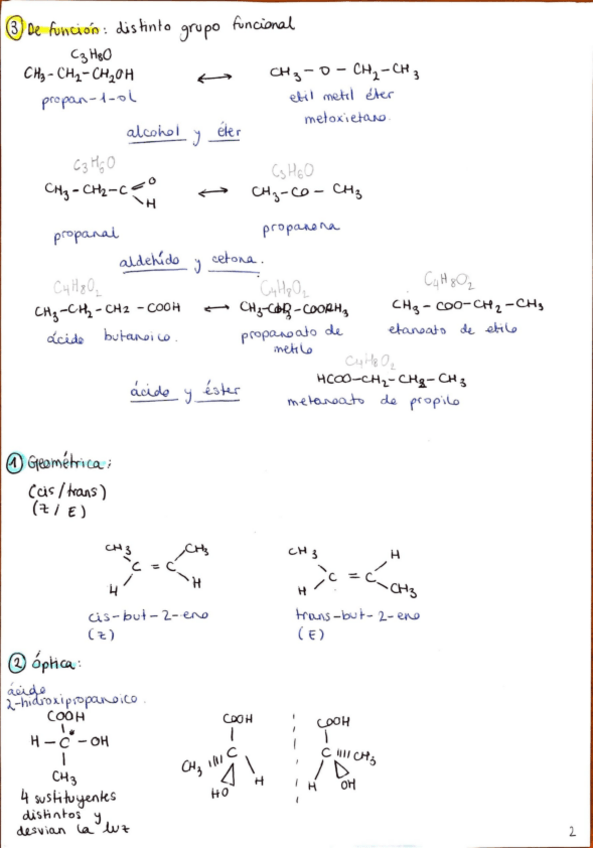 ③ De función: distinto grupo funcional
C3H8O
CH3-CH2-CH2OH ⟷ CH3-O-CH2-CH3
propan-1-ol etil metil éter
metoxietano.
alcohol y éter
C3H6O C3H6O
CH3-CH2-C=O ⟷ CH3-CO-CH3
H
propanal propanona
aldehído y cetona.
C4H8O2 C4H8O2 C4H8O2
CH3-CH2-CH2-COOH ⟷ CH3-CH2-COOCH3 CH3-COO-CH2-CH3
ácido butanoico. propanoato de metilo etanoato de etilo
C4H8O2
HCOO-CH2-CH2-CH3
ácido y éster metanoato de propilo
① Geométrica:
(cis/trans)
(Z/E)
CH3 CH3 CH3 H
C=C C=C
H H H CH3
cis-but-2-eno trans-but-2-eno
(Z) (E)
② Óptica:
ácido
2-hidroxipropanoico.
COOH COOH COOH
H-C*-OH CH3 C H HO C CH3 H OH
CH3
4 sustituyentes
distintos y
desvian la luz
2